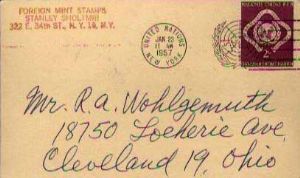 FOREIGN MINT STAMPS
STANLEY SMOLIMIH
322 E. 34th ST., N. Y. 16, N.Y.
UNITED NATIONS
JAN 23
11 AM
1957
NEW YORK
Mr. R. A. Wohlgemuth
18750 Locherie Ave.
Cleveland 19, Ohio